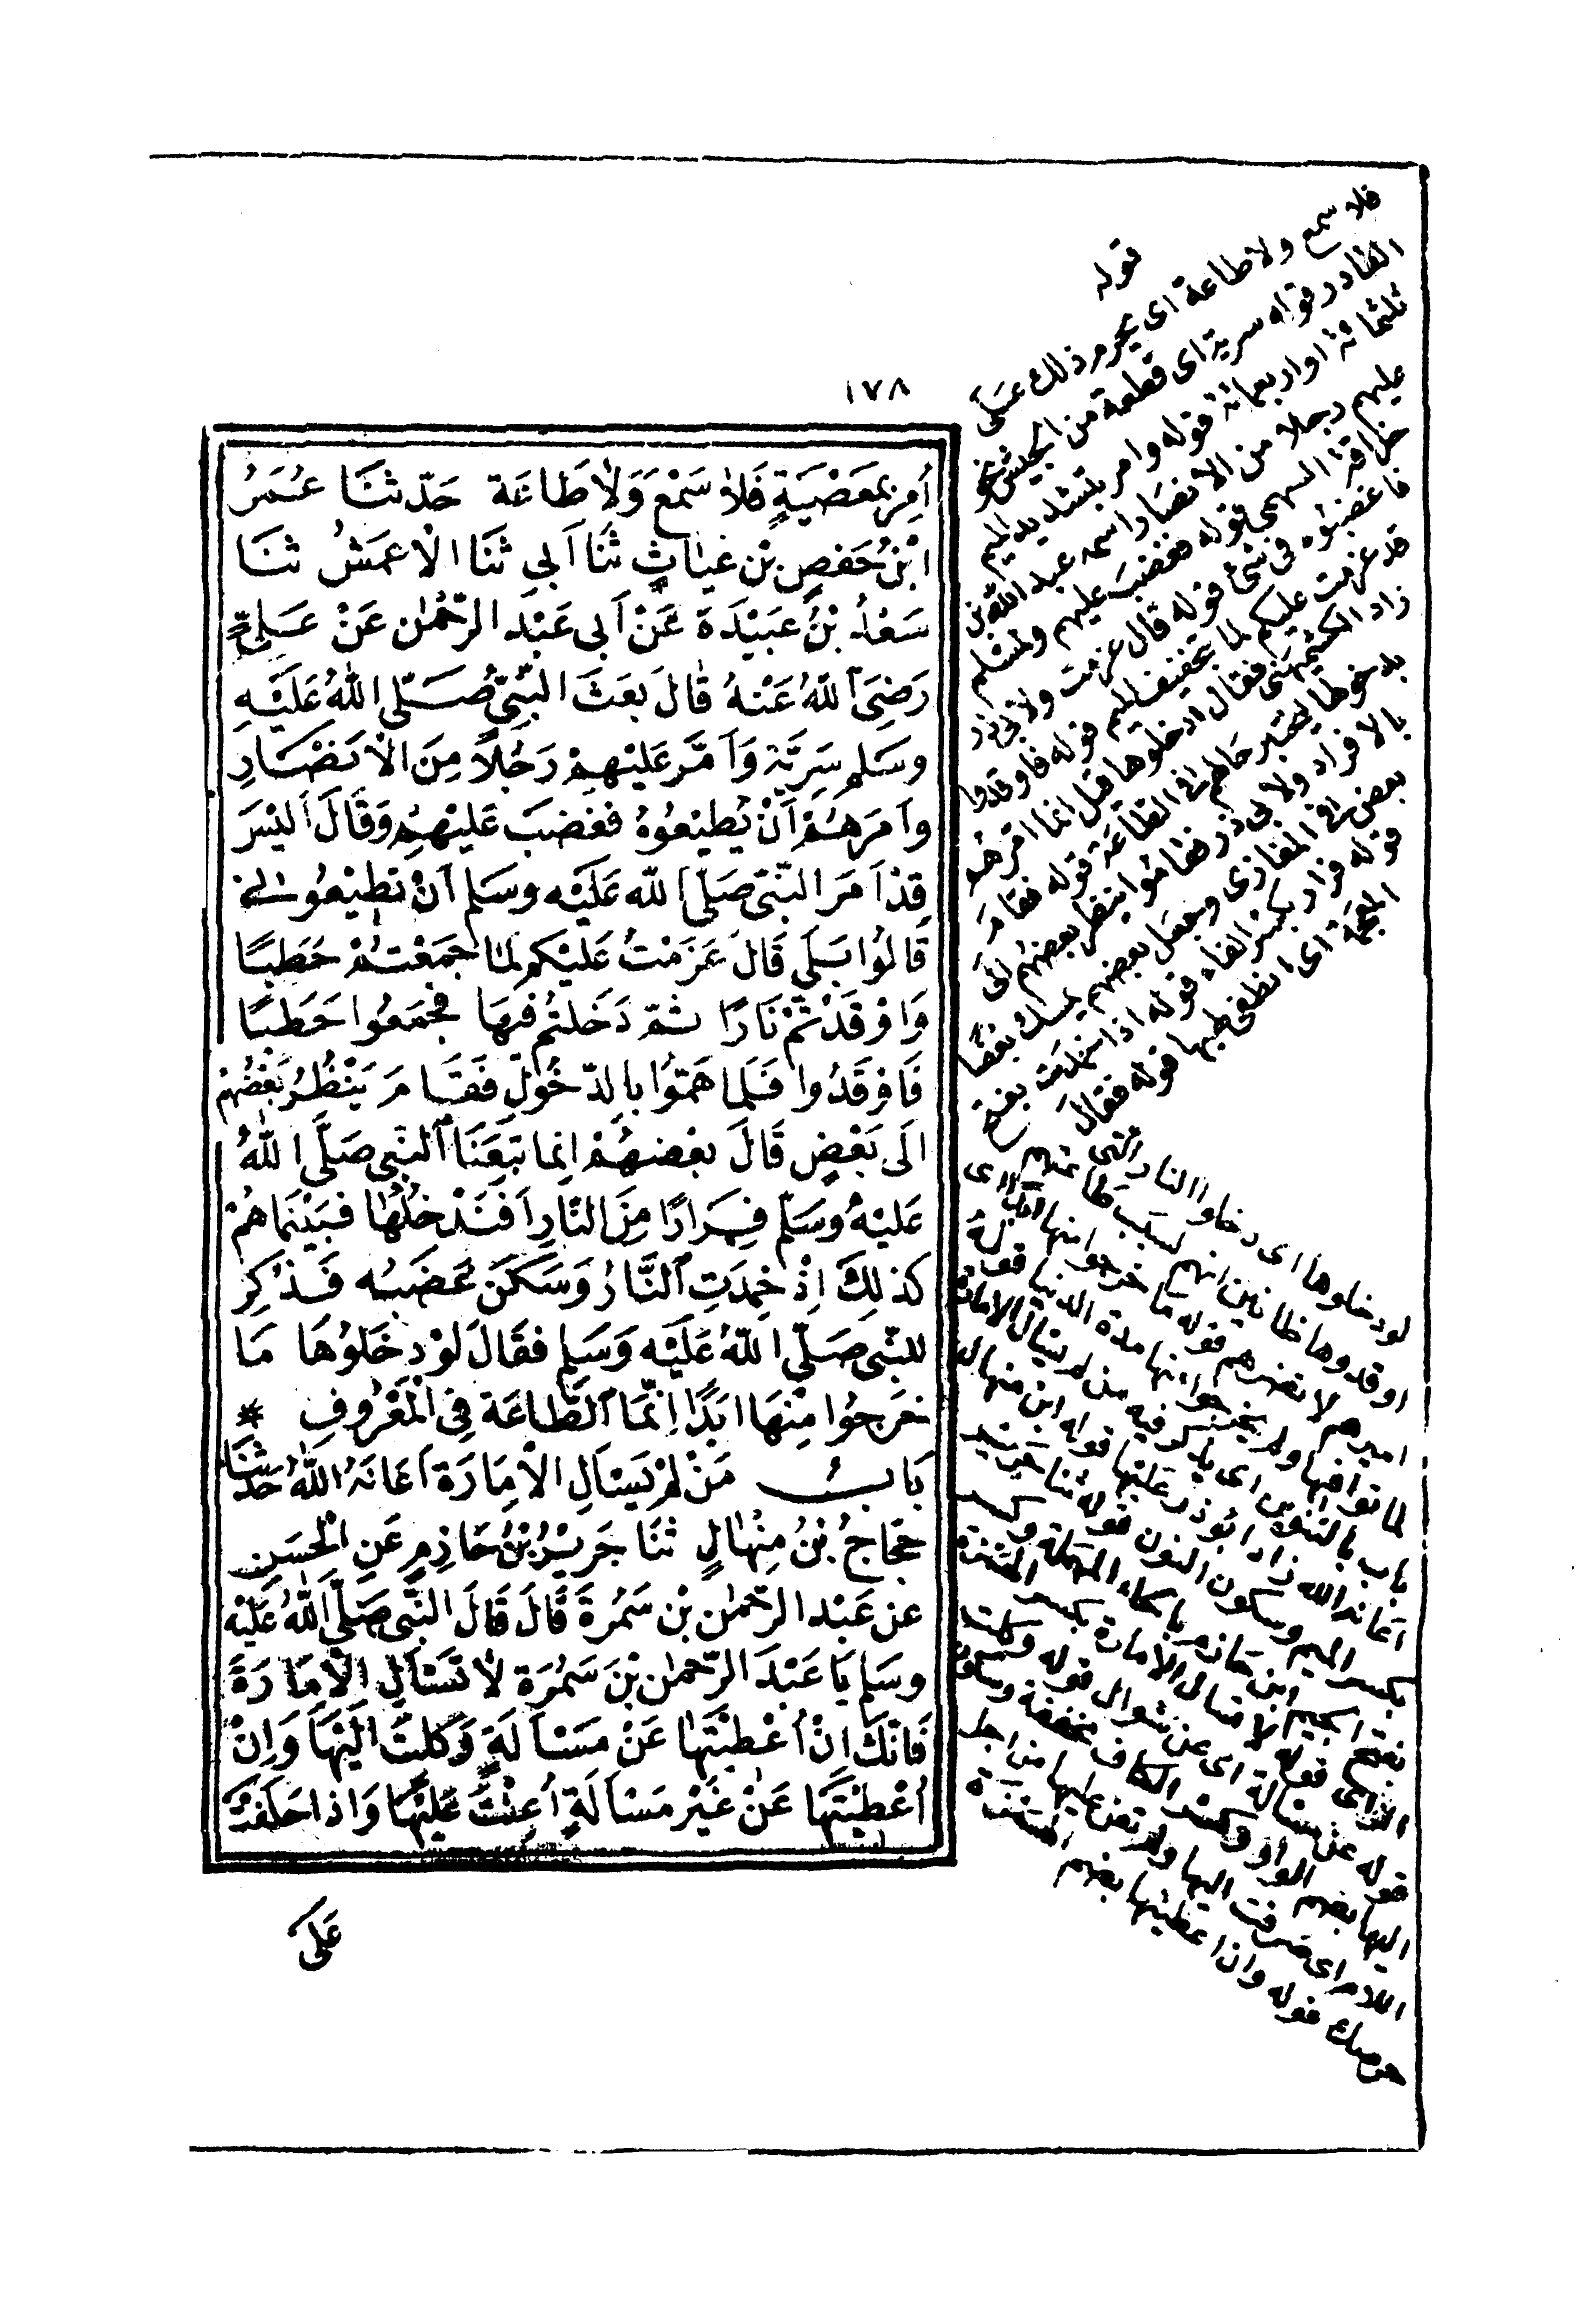 ١٧٨
أُمِرَ بِمَعْصِيَةٍ فَلَا سَمْعَ وَلَا طَاعَةَ حَدّثنَا عُمَرُ
ابْنُ حَفصِ بْنِ غيَاثٍ ثَنَا اَبي ثنَا الْاعمَشُ ثنَا
سَعْدُ بْنُ عُبَيْدَةَ عَنْ اَبى عَبْدِ الرّحْمٰن عَنْ عَلِيٍّ
رَضِىَ اللّٰهُ عَنْهُ قَالَ بعَثَ النّبِيُّ صَلّى اللّٰهُ عَلَيْهِ
وسَلم سَرِيَّةً وَاَمَّرَ عَلَيْهِمْ رَجُلاً مِنَ الْانْصَارِ
واَمَرَهُمْ اَنْ يُطيْعُوْهُ فغضبَ عَلَيْهِمْ وَقَالَ اَليْسَ
قدْ اَمَرَ النّبىّ صَلّى اللّه عَلَيْه وسَلم اَنْ تطيْعُوْنِى
قَالُوْا بَلَى قَالَ عَزَمْتُ عَلَيْكم لَمَا جَمَعْتُمْ حَطبًا
وَاوْقَدْتُمْ نَارًا ثمّ دَخَلتُم فيهَا فجَمَعُوا حَطبًا
فَاوْقَدُوا فَلَما هَمّوْا بِالدّخُوْلِ فَقَامَ يَنْظُرُ بَعْضُهُمْ
الَى بَعْضٍ قَالَ بعْضهُمْ اِنما تبِعْنَا النّبِى صَلَّى اللّٰهُ
عَليْهِ وَسَلّم فِرَارًا مِنَ النّارِ اَفَنَدْخُلُهَا فبَيْنَمَا هُمْ
كذلِكَ اِذْ خمِدَتِ النَّارُ وَسَكَنَ غَضَبُه فَذُكِرَ
للنّبى صَلّى اللّهُ عَلَيْه وَسَلم فقَالَ لَوْ دخَلُوْهَا مَا
خرَجُوْا مِنْهَا ابَدًا اِنّمَا الطّاعَة فِى الْمَعْرُوفِ *
بَابُ مَنْ لَمْ يَسْاَلِ الْاِمَارَةَ اَعَانَهُ اللّٰهُ حَدّثنَا
حجَاجُ بْنُ مِنْهَالٍ ثنَا جَرِيْرُ بْنُ حَازِمٍ عَنِ الْحَسَنِ
عن عَبْدِ الرّحمٰن بْن سَمُرةَ قَالَ قَالَ النّبِى صَلّى اللّٰهُ عَلَيْهِ
وسَلم يَا عَبْدَ الرّحْمٰن بْنَ سَمُرَة لَا تَسْاَلِ الْاِمَارَةَ
فَانّكَ اِنْ اُعْطِيْتَهَا عَنْ مَسْاَلَةٍ وُكِلْتَ اِلَيْهَا وَاِنْ
اُعْطِيْتَهَا عَنْ غَيْرِ مَسْاَلَةٍ اُعِنْتَ عَلَيْهَا وَاِذا حَلَفْتَ
عَلَى
قوله
فلا سمع ولا طاعة اى يحرم ذلك على
القادر قوله سرية اى قطعة من الجيش نحو
ثلثمائة او اربعمائة قوله وامر بتشديد الميم
عليهم رجلا من الانصار اسمه عبد الله بن
حذافة السهمى قوله فغضب عليهم ولمسلم
فاغضبوه فى شئ قوله قال عزمت ولابى ذر
قد عزمت عليكم لما بتخفيف الميم قوله فاوقدوا
زاد الكشميهنى فقال ادخلوها قيل انما امرهم
بدخولها ليختبر حالهم فى الطاعة قوله فقام
بالافراد ولابى ذر فقاموا ينظر بعضهم الى
بعض زاد فى المغازى وجعل بعضهم يمسك بعضا
قوله فرار بكسر الفاء قوله اذ خمدت بفتح
المعجمة اى انطفى لهبها قوله فقال
لو دخلوها اى دخلوا النار التى
اوقدوها ظانين انهم بسبب طاعتهم
اميرهم لا تضرهم قوله ما خرجوا منها ابدا اى
لماتوا فيها ولم يخرجوا منها مدة الدنيا قوله
باب بالتنوين اى يذكر فيه من لم يسال الامارة
اعانه الله زاد ابو ذر عليها قوله ابن منهال
بكسر الميم وسكون النون قوله ثنا جرير
بفتح الجيم ابن حازم بالحاء المهملة و
الزاى قوله لا تسال الامارة بكسر الهمزة
قوله عن مسالة اى عن سؤال قوله وكلت
اليها بضم الواو وكسر الكاف مخففة وسكون
اللام اى صرفت اليها ولم تعن عليها من اجل
حرصك قوله وان اعطيتها بضم الهمزة